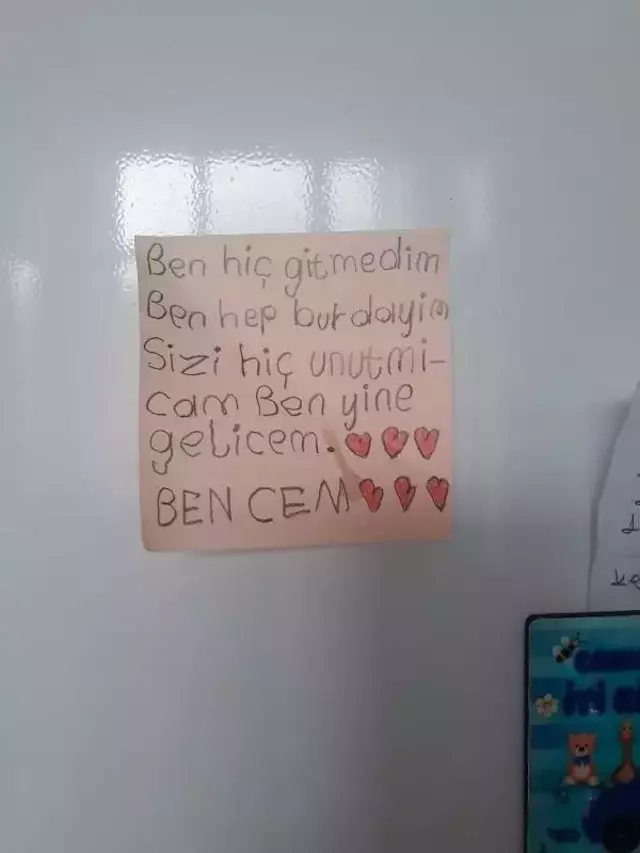 Ben hiç gitmedim
Ben hep burdayim
Sizi hiç unutmi-
cam Ben yine
gelicem.
BEN CEM